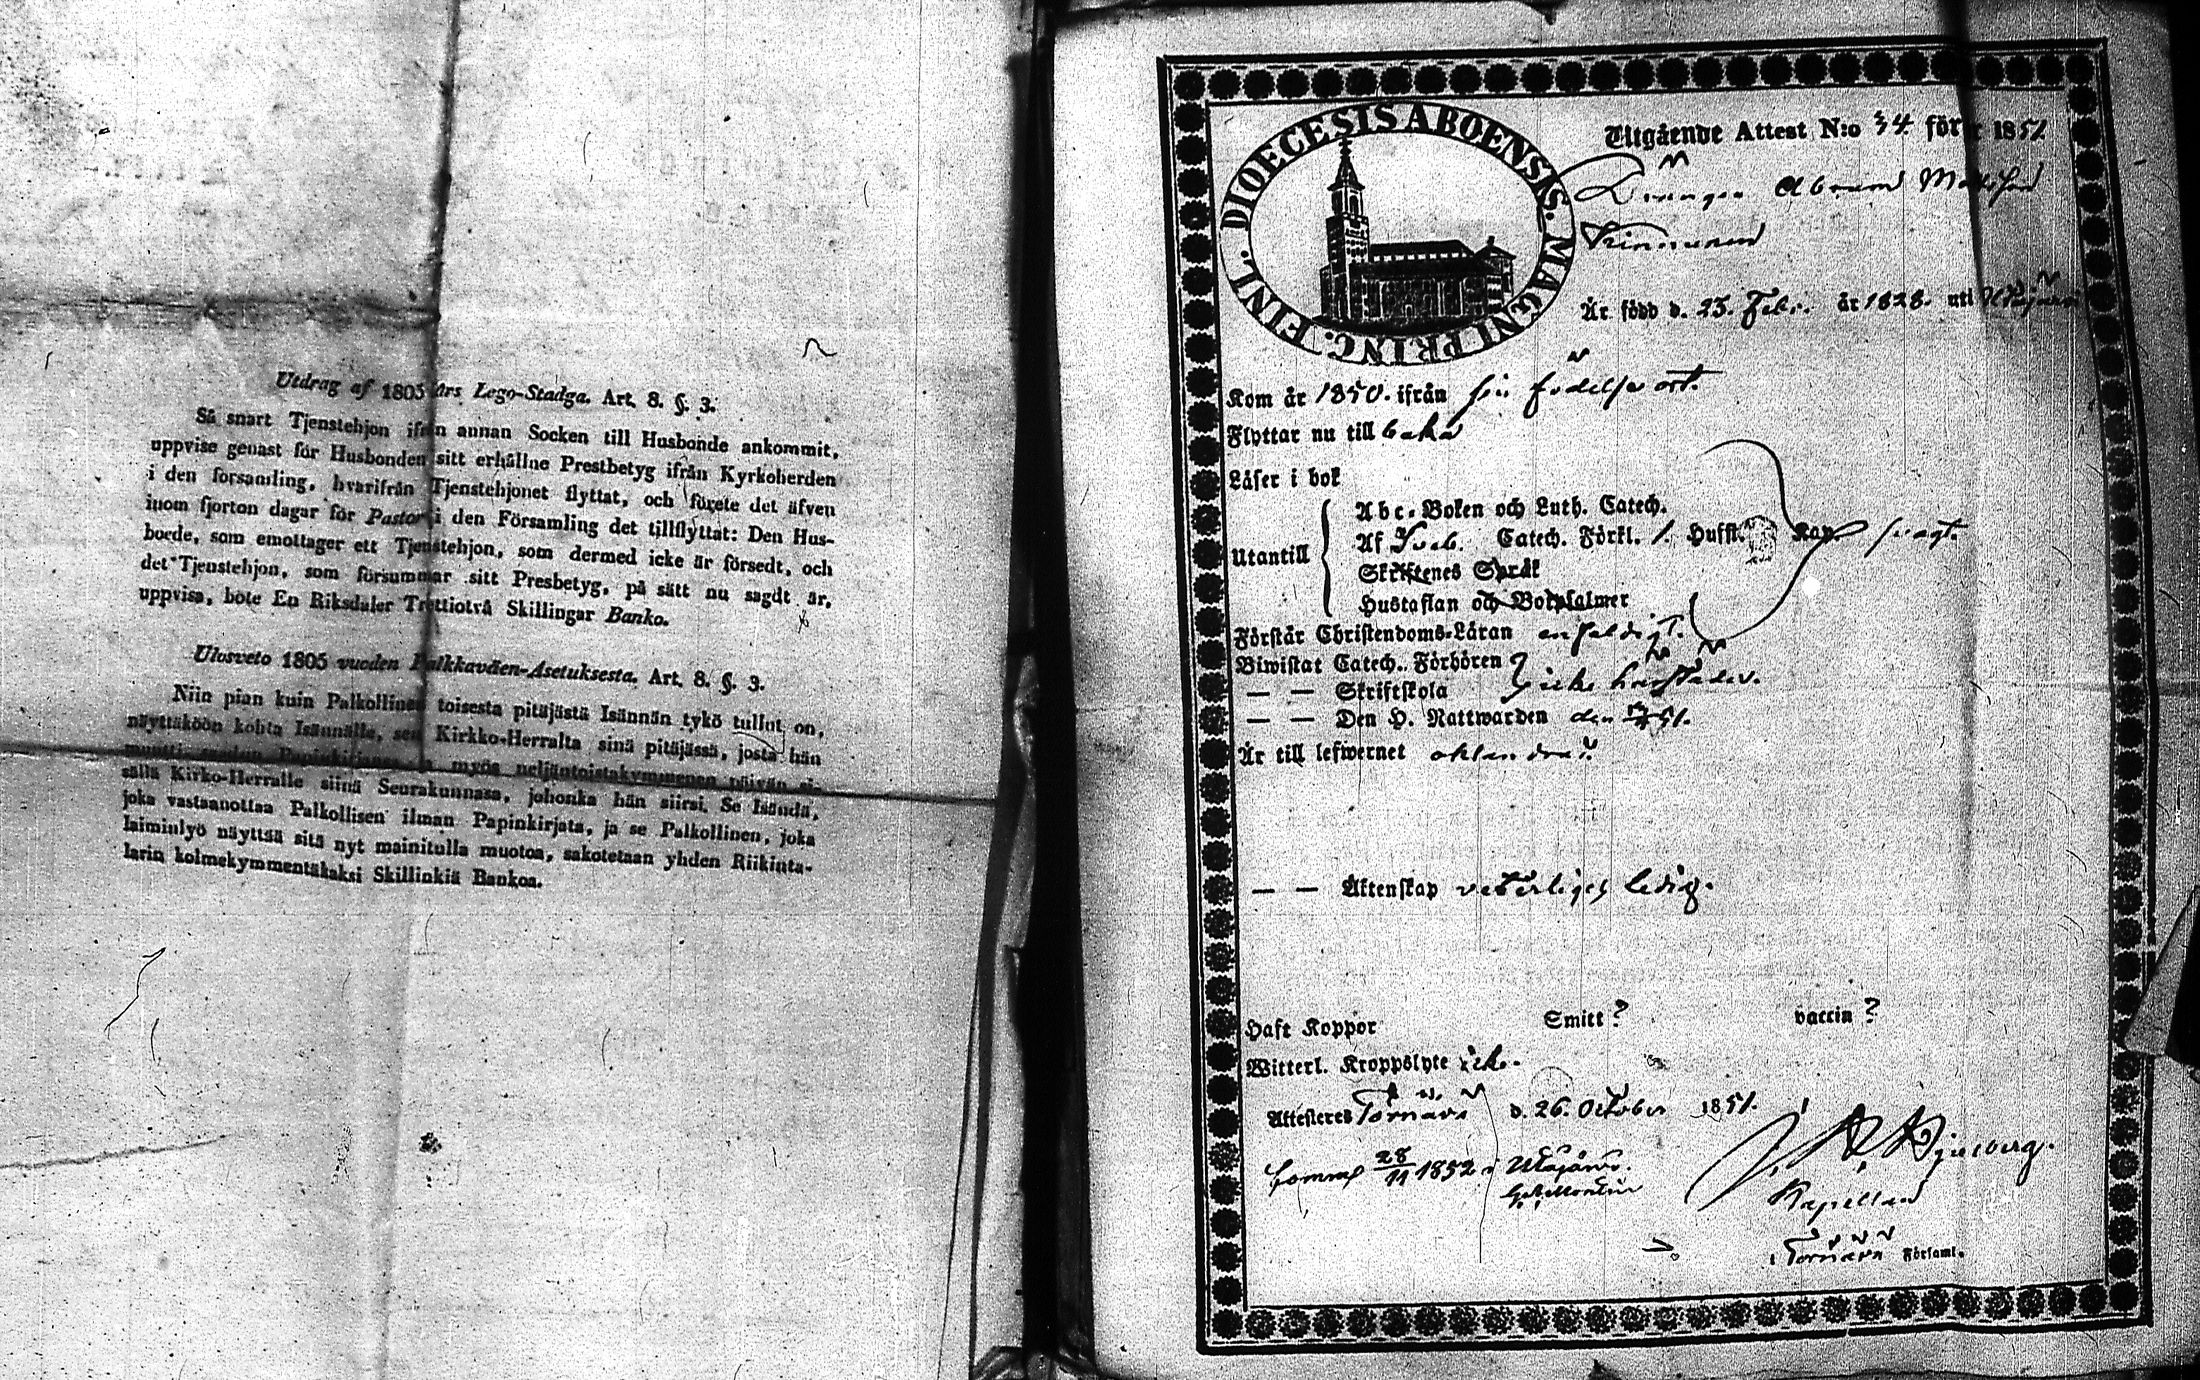 Utdrag af 1805 års Lego-Stadga. Art. 8. §. 3.
Så snart Tjenstehjon ifrån annan Socken till Husbonde ankommit,
uppvise genast för Husbonden sitt erhållne Prestbetyg ifrån Kyrkoherden
i den forsamling, hvarifrån Tjenstehjonet flyttat, och förete det äfven
inom fjorton dagar för Pastor i den Församling det tillflyttat: Den Hus-
bonde, som emottager ett Tjenstehjon, som dermed icke är försedt, och
det Tjenstehjon, som försummar sitt Presbetyg, på sätt nu sagdt är,
uppvisa, bote En Riksdaler Trettiotvå Skillingar Banko.
Ulosveto 1805 vuoden Palkkaväen-Asetuksesta. Art. 8. §. 3.
Niin pian kuin Palkollinen toisesta pitäjästä Isännän tykö tullut on,
näyttäköön kohta Isännälle, sen Kirkko-Herralta sinä pitäjässä, josta hän
muutti, saadun Papinkirjansa myös neljäntoistakymmenen päivän si-
sällä Kirko-Herralle siinä Seurakunnasa, johonka hän siirsi. Se Isändä,
joka vastaanottaa Palkollisen ilman Papinkirjata, ja se Palkollinen, joka
laiminlyö näyttää sitä nyt mainitulla muotoa, sakotetaan yhden Riikinta-
larin kolmekymmentäkaksi Skillinkiä Bankoa.
DIOECESIS ABOENSIS. MAGNI PRINC. FINL.
Utgående Attest N:o 34 för år 1851
Drängen Abram Mattsson
Är född d. 23. Febr. år 1828. uti Ulfsjärn
Kom år 1850. ifrån sin födelse ort.
Flyttar nu till baka
Läser i bok
Utantill
Abc-Boken och Luth. Catech.
Af Sveb. Catech. Förkl. 1. Hufst. Kap. svagt.
Skriftenes Språk
Hustaflan och Botpsalmer
Förstår Christendoms-Läran enfaldigt.
Biwistat Catech. Förhören
— — Skriftskola icke hörstädes.
— — Den H. Nattwarden den 51.
Är till lefwernet oklandrad.
— — Äktenskap veterligen ledig.
Haft Koppor Smitt? vaccin?
Witterl. Kroppslyte icke.
Attesteres Törnävä d. 26. October 1851.
28/11 1852 i
Kapellan
i Törnävä Församl.